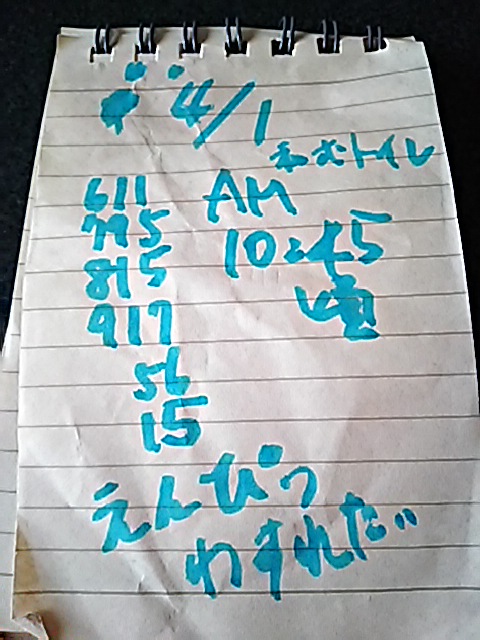 4/1
トイレ
611 AM
795 10:45
815 頃
917
56
15
えんぴつ
わすれた"